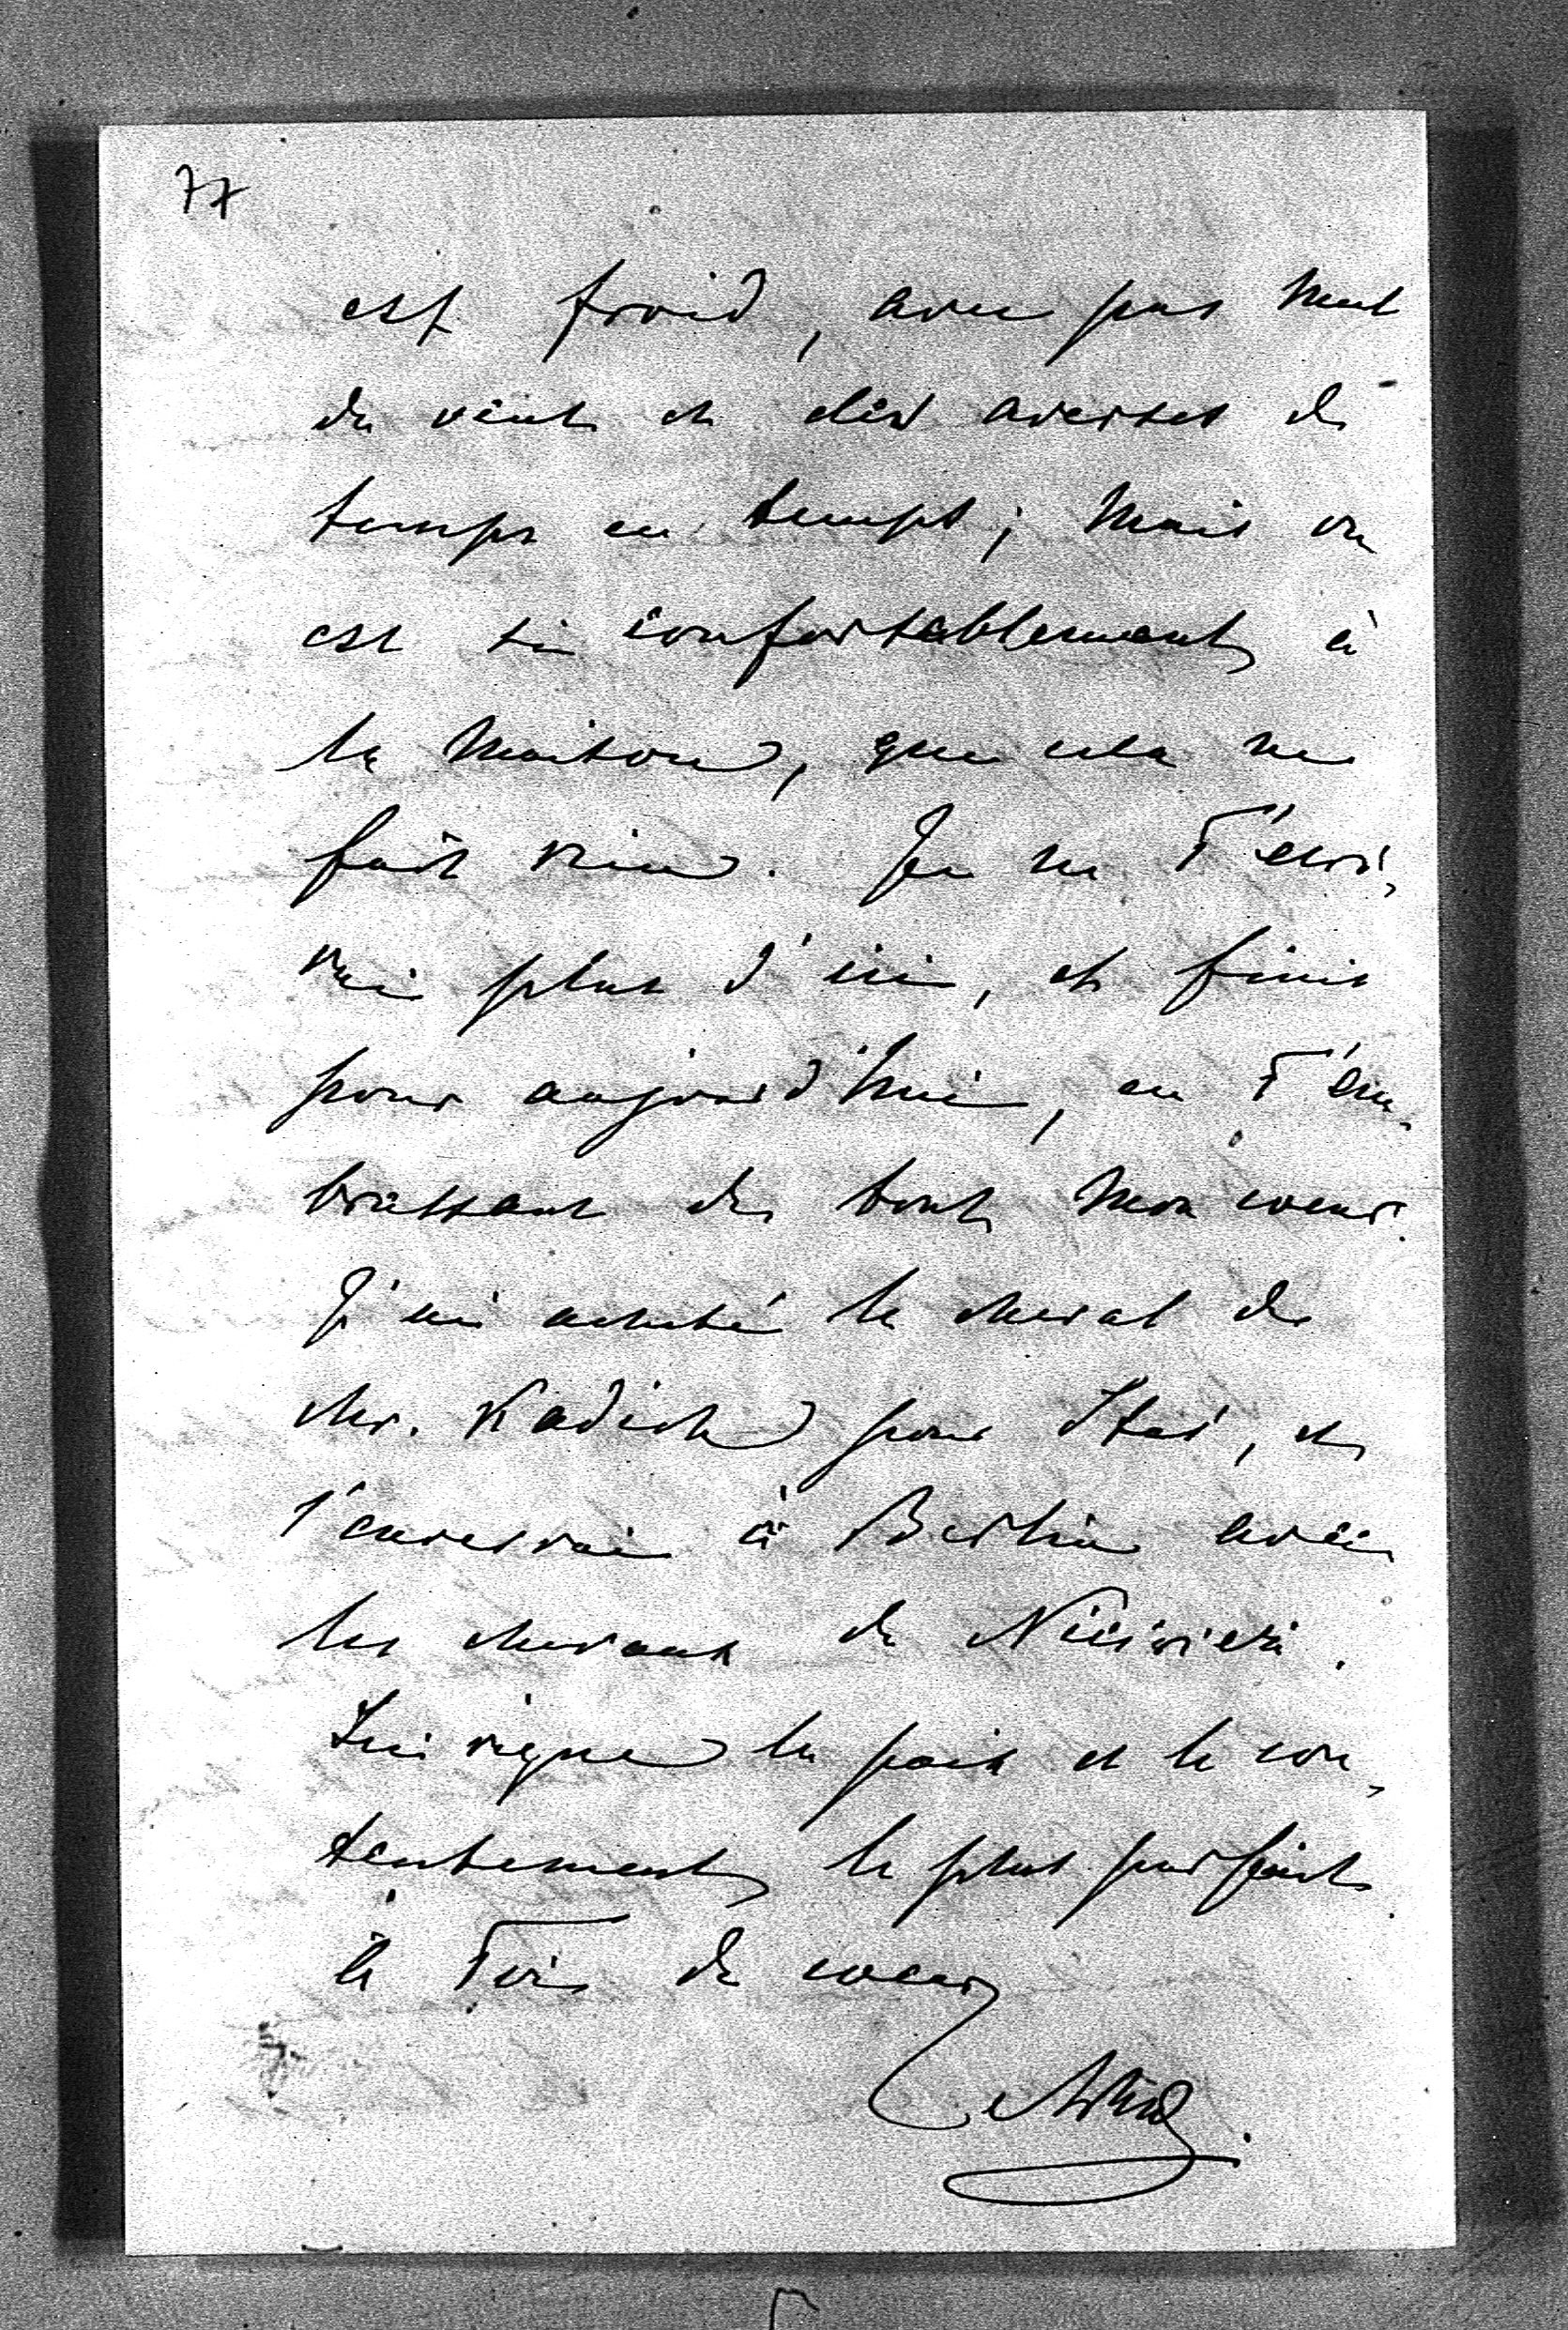 77
est froid, avec pas mal
de vent et des averses de
temps en temps; mais on
est si confortablement à
la maison, que cela ne
fait rien. Je ne T'écri,
rai plus d'ici, et finis
pour aujourd'hui, en T'em,
brassant de tout mon coeur.
J'ai acheté le cheval de
Mr. Kadich pour Stas, et
l'enverrai à Berlin avec
les chevaux de Nieśwież.
Ici règne la paix et le con,
tentement le plus parfait.
à Toi de coeur